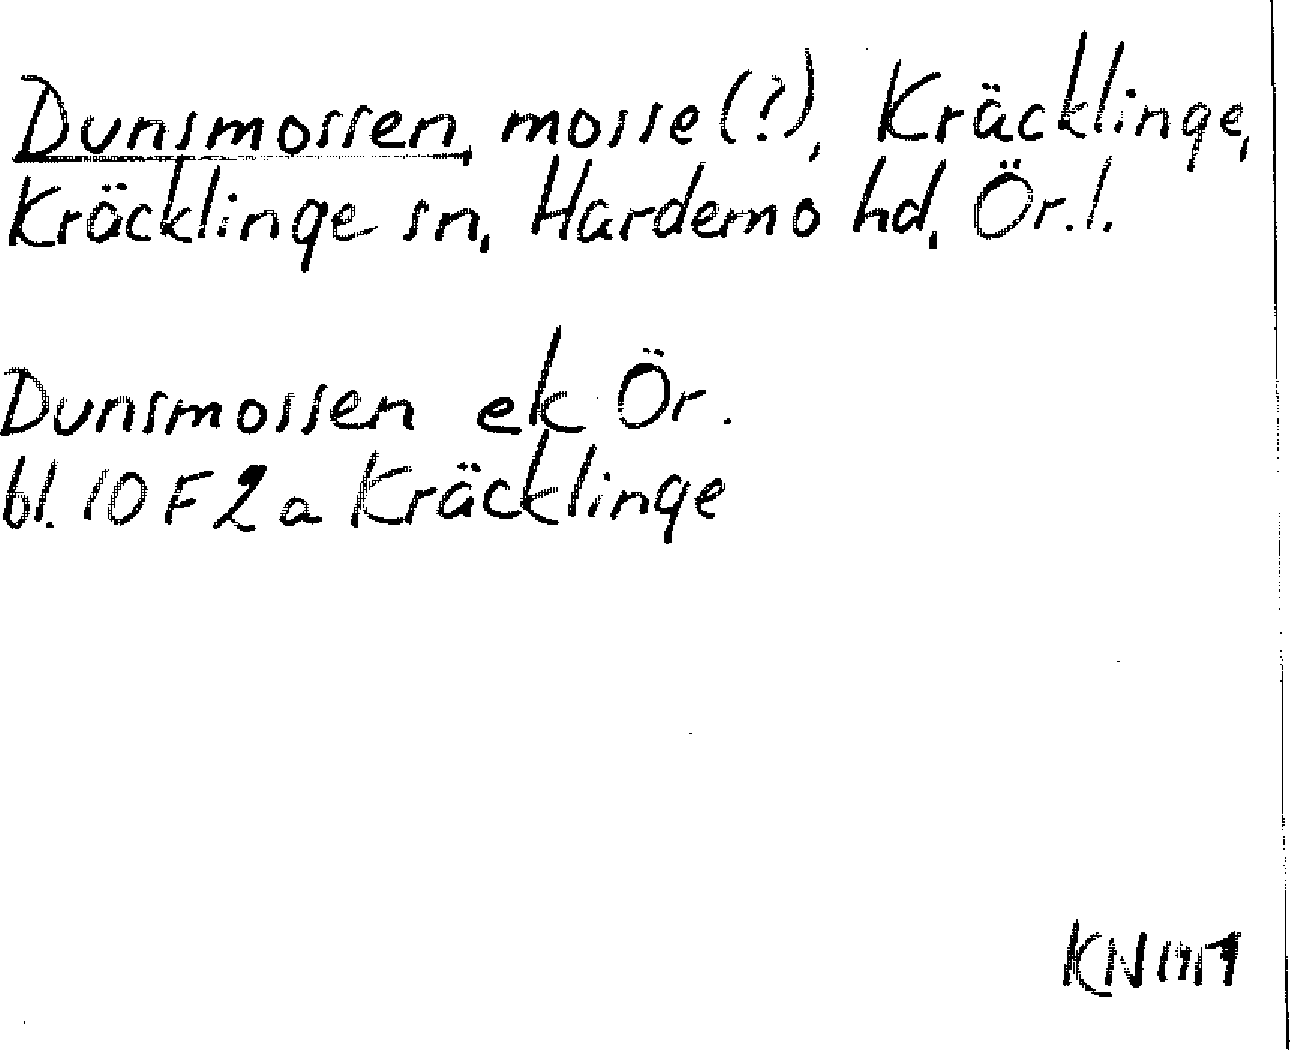 Dunsmossen, mosse (?), Kräcklinge,
Kräcklinge sn, Hardemo hd, Ör. l.
Dunsmossen ek Ör.
bl. 10 F 2 a Kräcklinge
KN